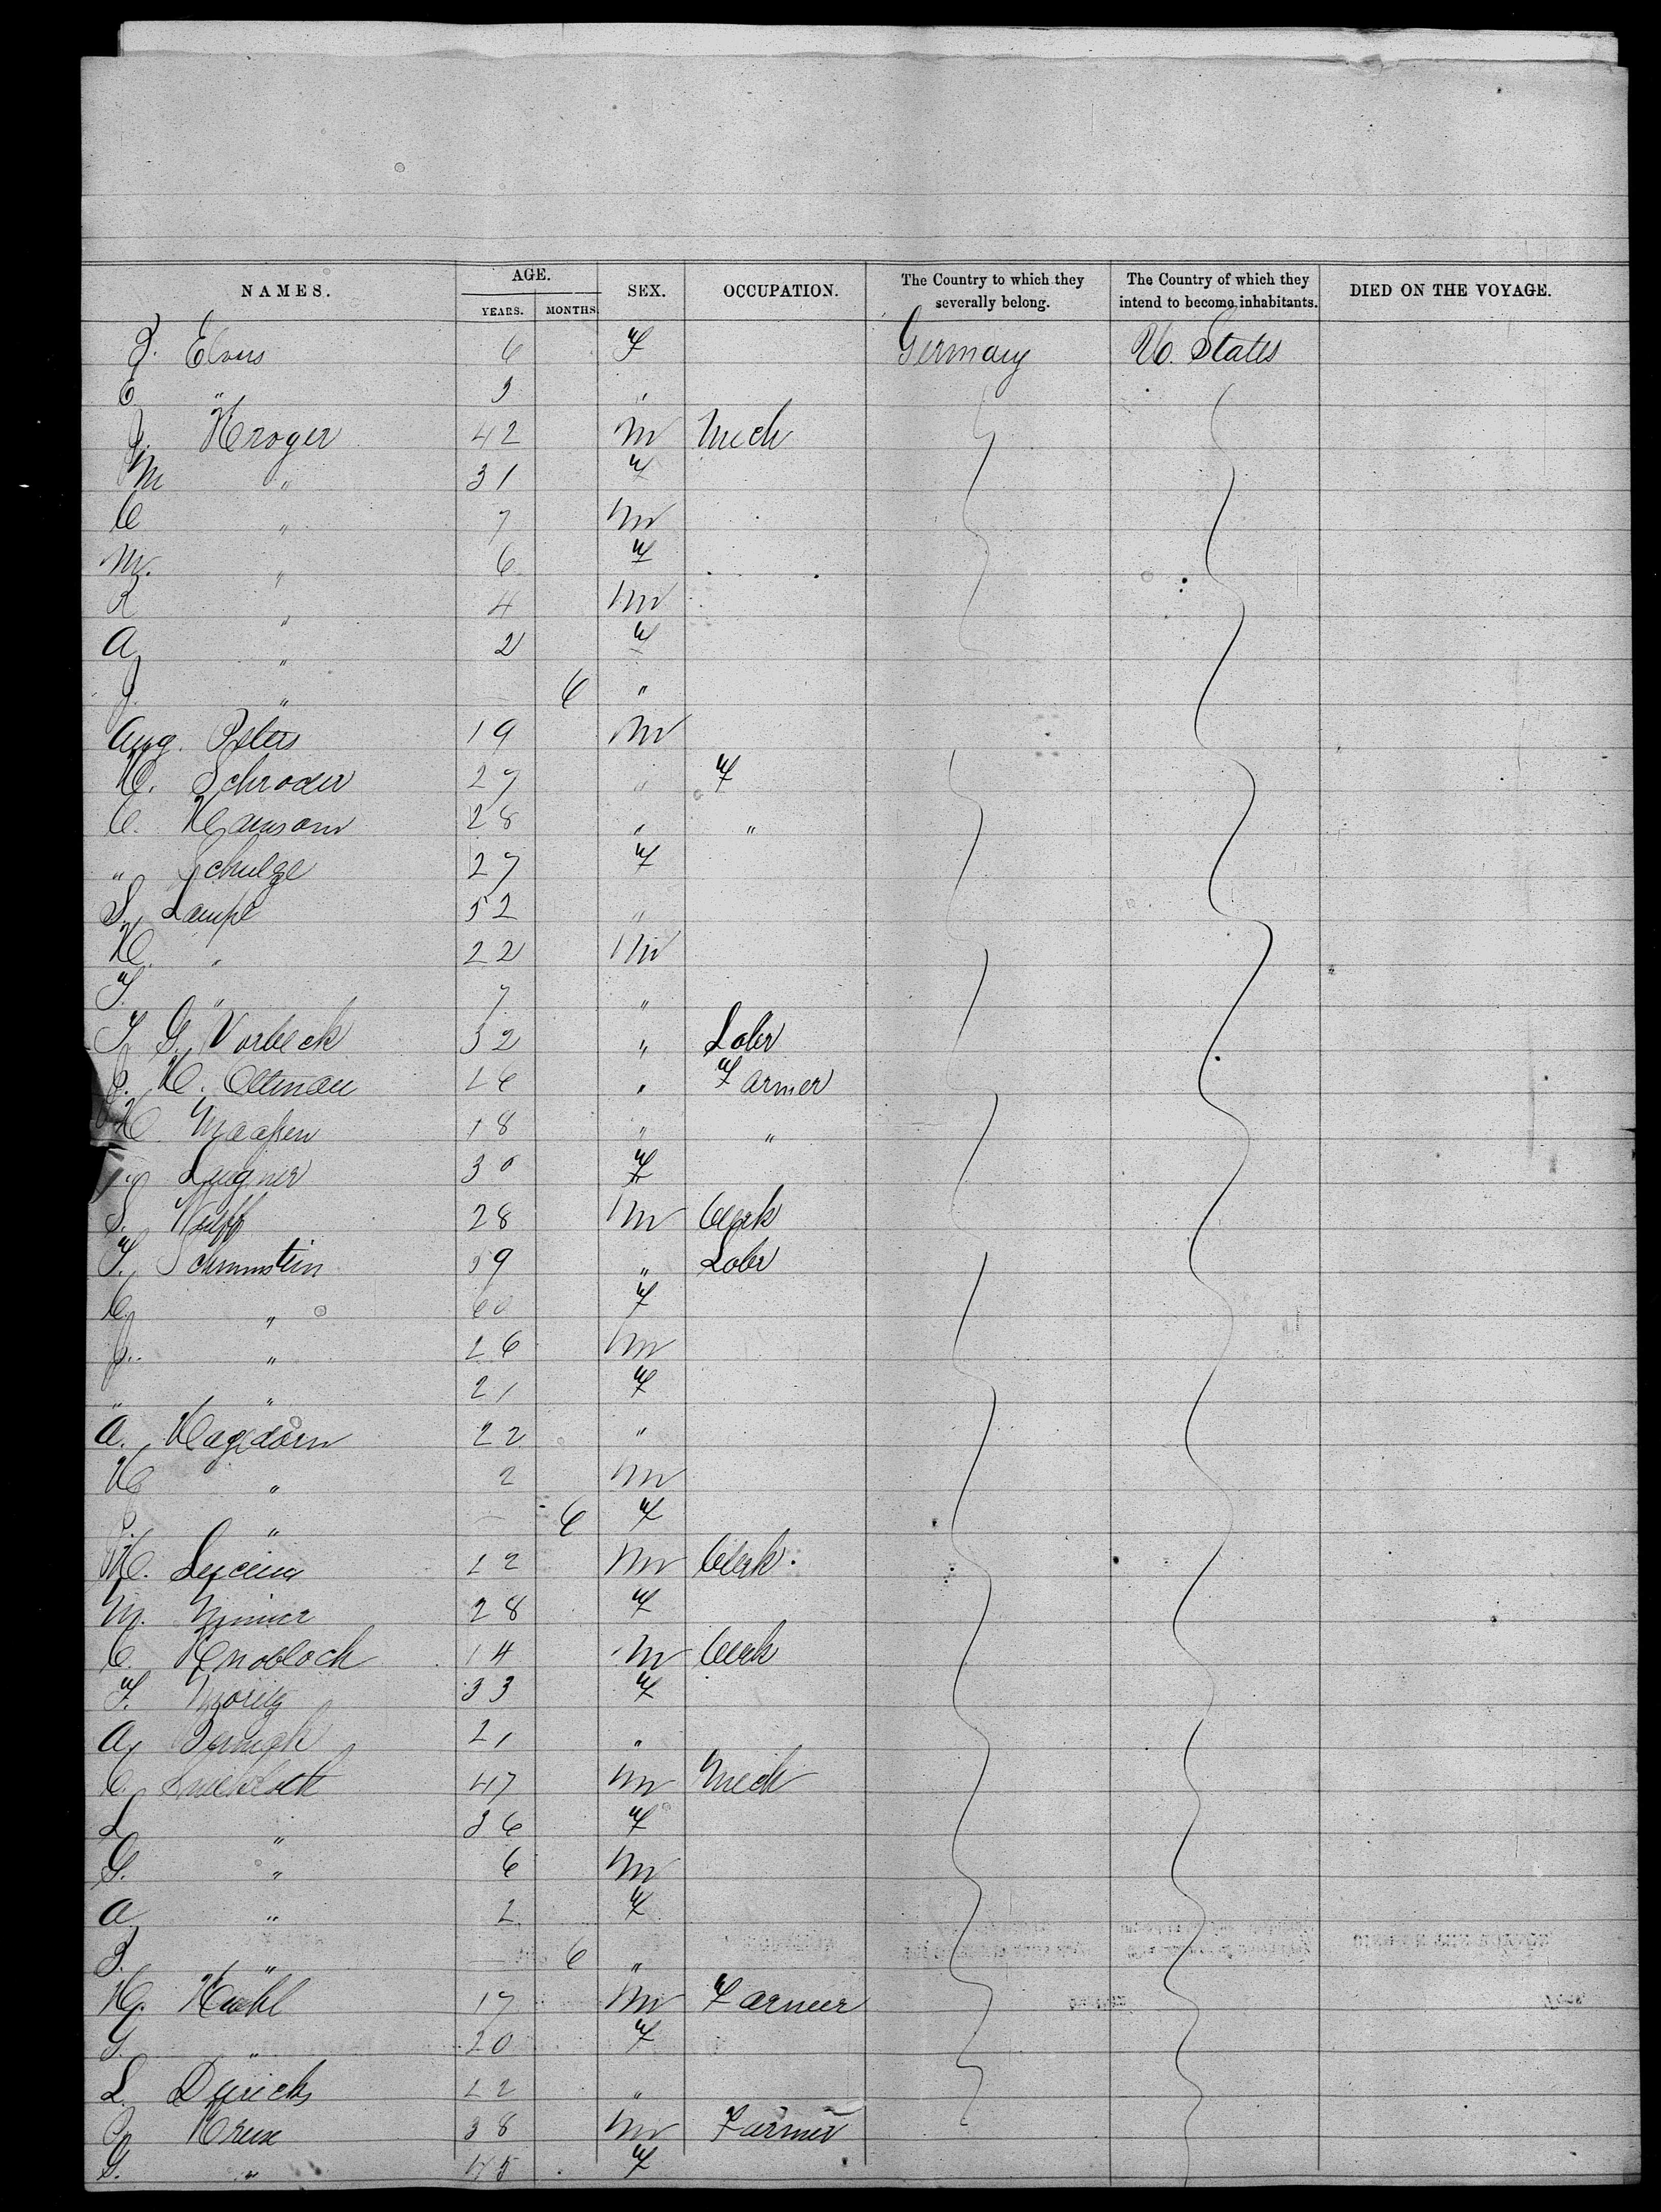 NAMES. AGE. YEARS. MONTHS. SEX. OCCUPATION. The Country to which they severally belong. The Country of which they intend to become inhabitants. DIED ON THE VOYAGE.
6 F Germany U. States
" 3 "
Kroger 42 M Mech
M " 31 F
C " 7 M
M. " 6 F
R " 4 M
A " 2 F
J. " 6 "
Aug. Peters 19 M
H. Schroder 27 " F
C. Hansom 28 " "
" Schulze 27 F
S. Lampe 52 "
H. " 22 M
F. " 7 "
F G. Vorbeck 32 " Labr
H. Ottman 16 " Farmer
H Maaßen 18 " "
30 F
S. Wulff 28 M Clerk
F. 59 " Labr
C. " 60 F
J. " 26 M
" " 21 F
A. Hagedorn 22 "
H " 2 M
" 6 F
H. 22 M Clerk.
M. 28 F
C. Knobloch 14 M Clerk
F. Moritz 33 F
A. 21 "
C. 47 M Mech
L " 36 F
G. " 6 M
A " 2 F
B. " 6 "
Hy. Kuhl 17 M Farmer
G. " 20 F
L. Dyricks 22 "
Kruse 38 M Farmer
G. " F